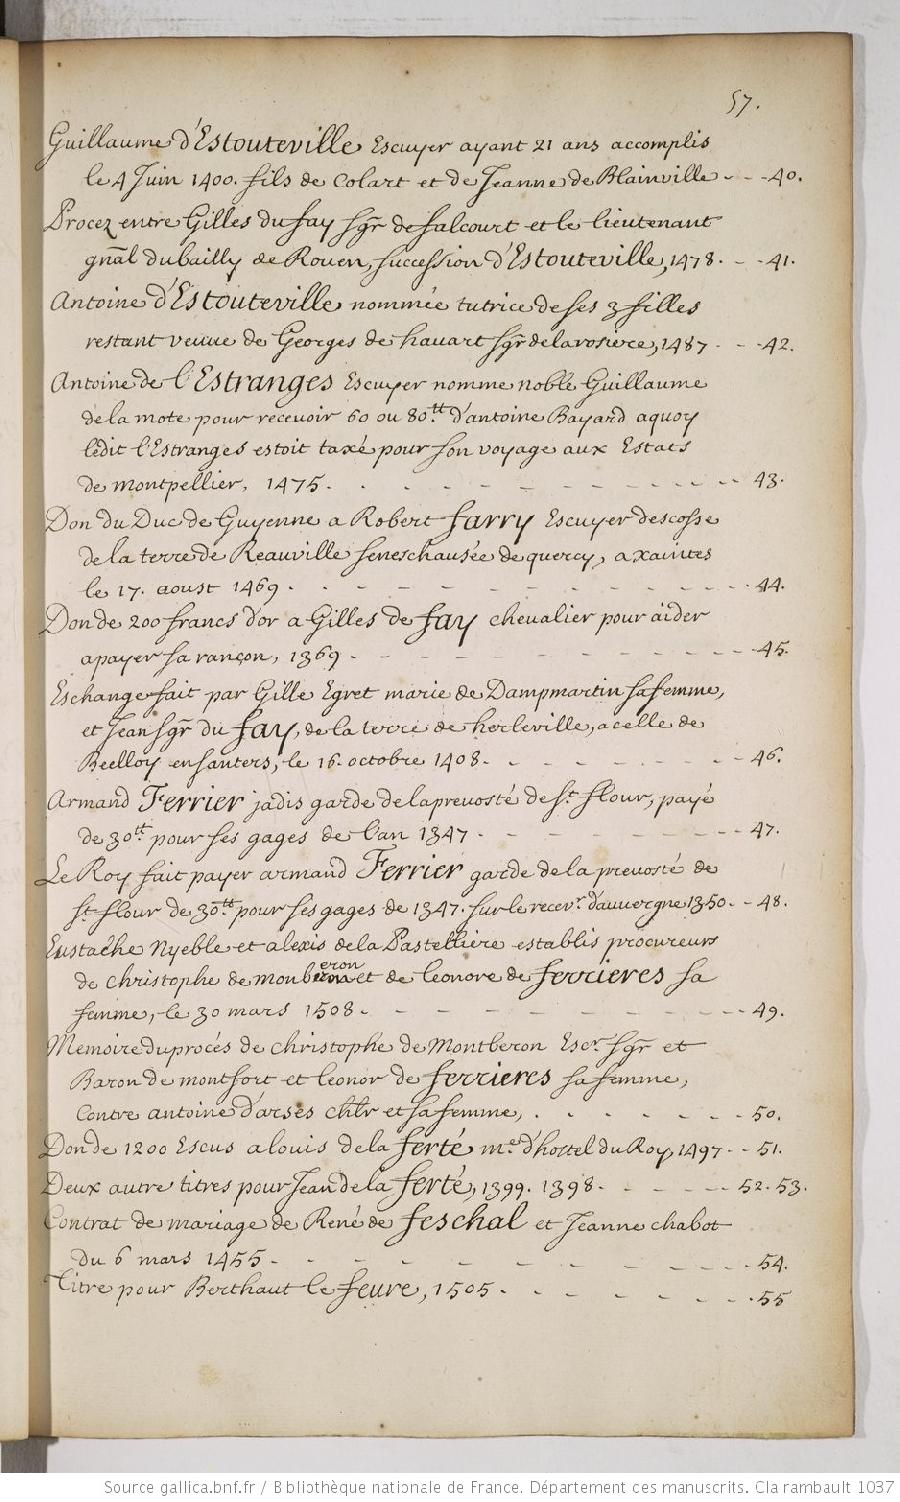 57.
Guillaume d'Estouteville Escuyer ayant 21 ans accomplis
le 4 Juin 1400. fils de Colart et de Jeanne de Blainville - - - 40.
Procez entre Gilles du fay sgr de falcourt et le lieutenant
gñal du bailly de Rouen, succession d'Estouteville, 1478. - - 41.
Antoine d'Estouteville nommée tutrice de ses 3 filles
restant veuve de Georges de havart sgr de la rosiere, 1487 - - - 42.
Antoine de l'Estranges Escuyer nomme noble Guillaume
de la mote pour recevoir 60 ou 80.tt d'antoine Bayard aquoy
ledit l'Estranges estoit taxé pour son voyage aux Estats
de montpellier, 1475. - - - - - - - - - 43.
Don du Duc de Guyenne a Robert farry Escuyer descosse
de la terre de Reauville seneschausée de quercy, a xaintes
le 17. aoust 1469. - - - - - - - - - 44.
Don de 200 francs d'or a Gilles de fay chevalier pour aider
a payer sa rançon, 1369 - - - - - - - - - 45.
Eschange fait par Gille Egret marie de Dampmartin sa femme,
et Jean sgr du fay, de la terre de herleville, a celle de
Beelloy ensanters, le 16. octobre 1408. - - - - - - - 46.
Armand Ferrier jadis garde de la prevosté de st. flour, payé
de 30.tt pour ses gages de l'an 1347 - - - - - - - - 47.
Le Roy fait payer armand Ferrier garde de la prevosté de
st. flour de 30.tt pour ses gages de 1347. sur le recevr. d'auvergne 1350. - - 48.
Eustache Nyeble et alexis de la Pastelliere establis procureurs
de christophe de monberon et de leonore de ferrieres sa
eron
famme, le 30 mars 1508. - - - - - - - - - 49.
Memoire du procés de christophe de Montberon Escr. sgr et
Baron de montfort et leonor de ferrieres sa femme,
Contre antoine d'arses chlr et sa femme, . - - - - - - 50.
Don de 1200 Escus a louis de la ferté me. d'hostel du Roy, 1497 - - 51.
Deux autre titres pour Jean de la ferté, 1399. 1398. - - - - - 52. 53.
Contrat de mariage de René de feschal et Jeanne chabot
du 6 mars 1455 - - - - - - - - - - 54.
Titre pour Berthaut le feure, 1505. - - - - - - - 55
Source gallica.bnf.fr / Bibliothèque nationale de France. Département des manuscrits. Clairambault 1037